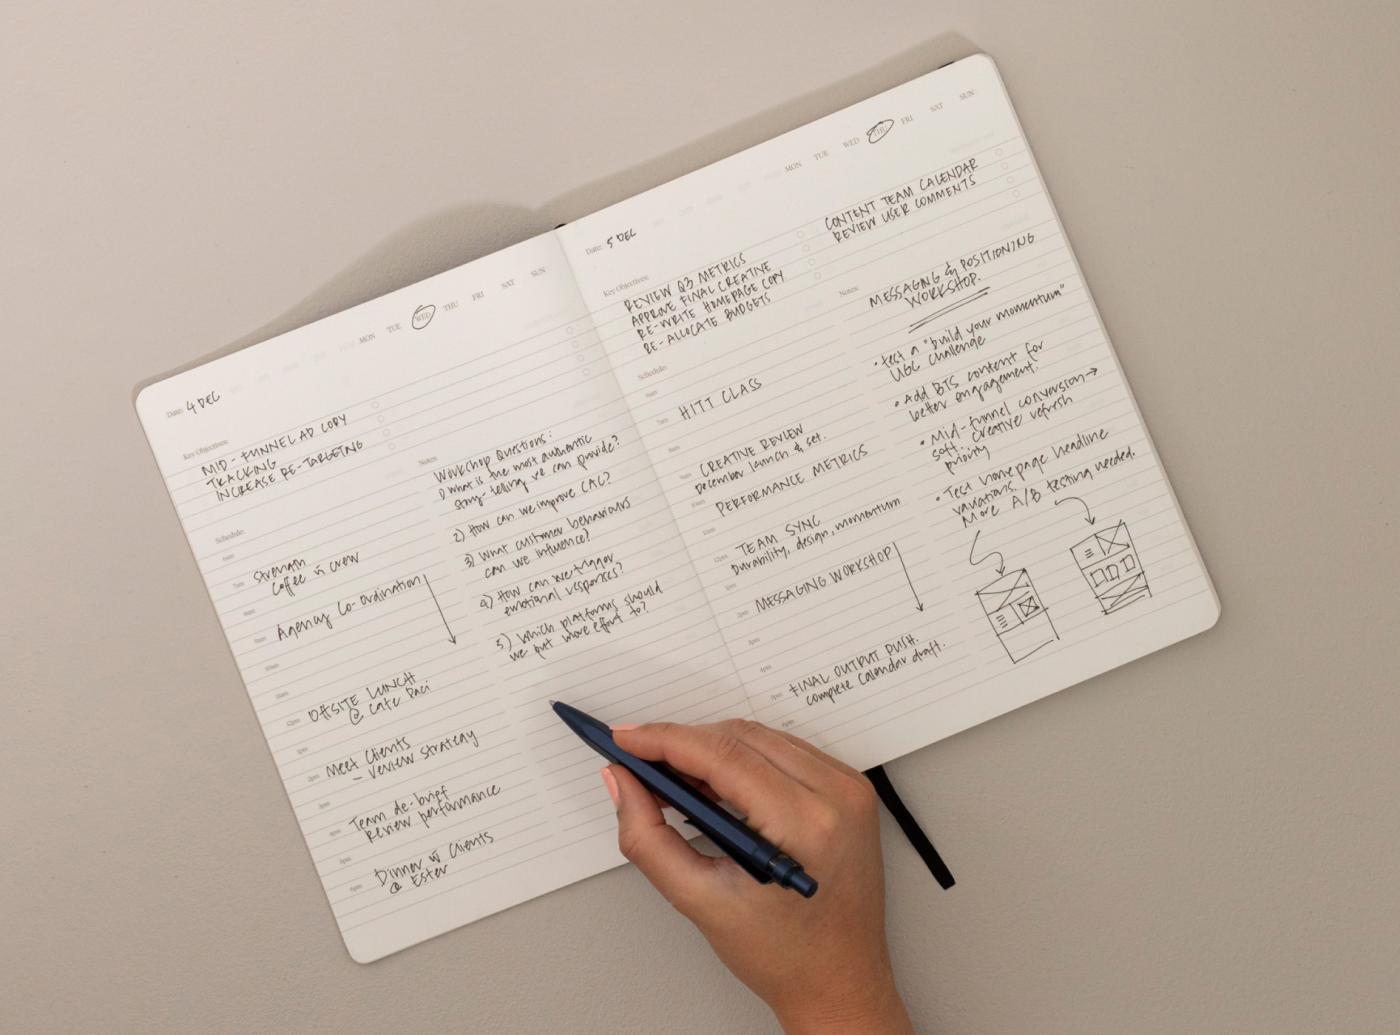 Date: 4 DEC
MON TUE WED THU FRI SAT SUN
Key Objectives:
MID-FUNNEL AD COPY
TRACKING
INCREASE RE-TARGETING
Schedule:
6am
7am Strength
Coffee w crew
8am
9am Agency Co-ordination
10am
11am
12pm OffSITE LUNCH
@ Cafe Paci
1pm
2pm Meet Clients
- review strategy
3pm
4pm Team de-brief
Review performance
5pm
6pm Dinner w Clients
@ Ester
Notes:
Workshop Questions:
1) What is the most authentic
story-telling we can provide?
2) How can we improve CAC?
3) What customer behaviours
can we influence?
4) How can we trigger
emotional responses?
5) Which platforms should
we put more effort to?
Date: 5 DEC
MON TUE WED THU FRI SAT SUN
Key Objectives:
REVIEW Q3 METRICS
APPROVE FINAL CREATIVE
RE-WRITE HOMEPAGE COPY
RE-ALLOCATE BUDGETS
CONTENT TEAM CALENDAR
REVIEW USER COMMENTS
Schedule:
6am
7am HITT CLASS
8am
9am CREATIVE REVIEW
December launch & set.
10am
11am PERFORMANCE METRICS
12pm TEAM SYNC
Durability, design, momentum
1pm
2pm MESSAGING WORKSHOP
3pm
4pm
5pm FINAL OUTPUT PUSH.
complete calendar draft.
6pm
Notes:
MESSAGING & POSITIONING
WORKSHOP.
• test a "build your momentum"
UGC challenge
• Add BTS content for
better engagement.
• Mid-funnel conversion →
soft. creative refresh
priority
• Test homepage headline
variations.
More A/B testing needed.